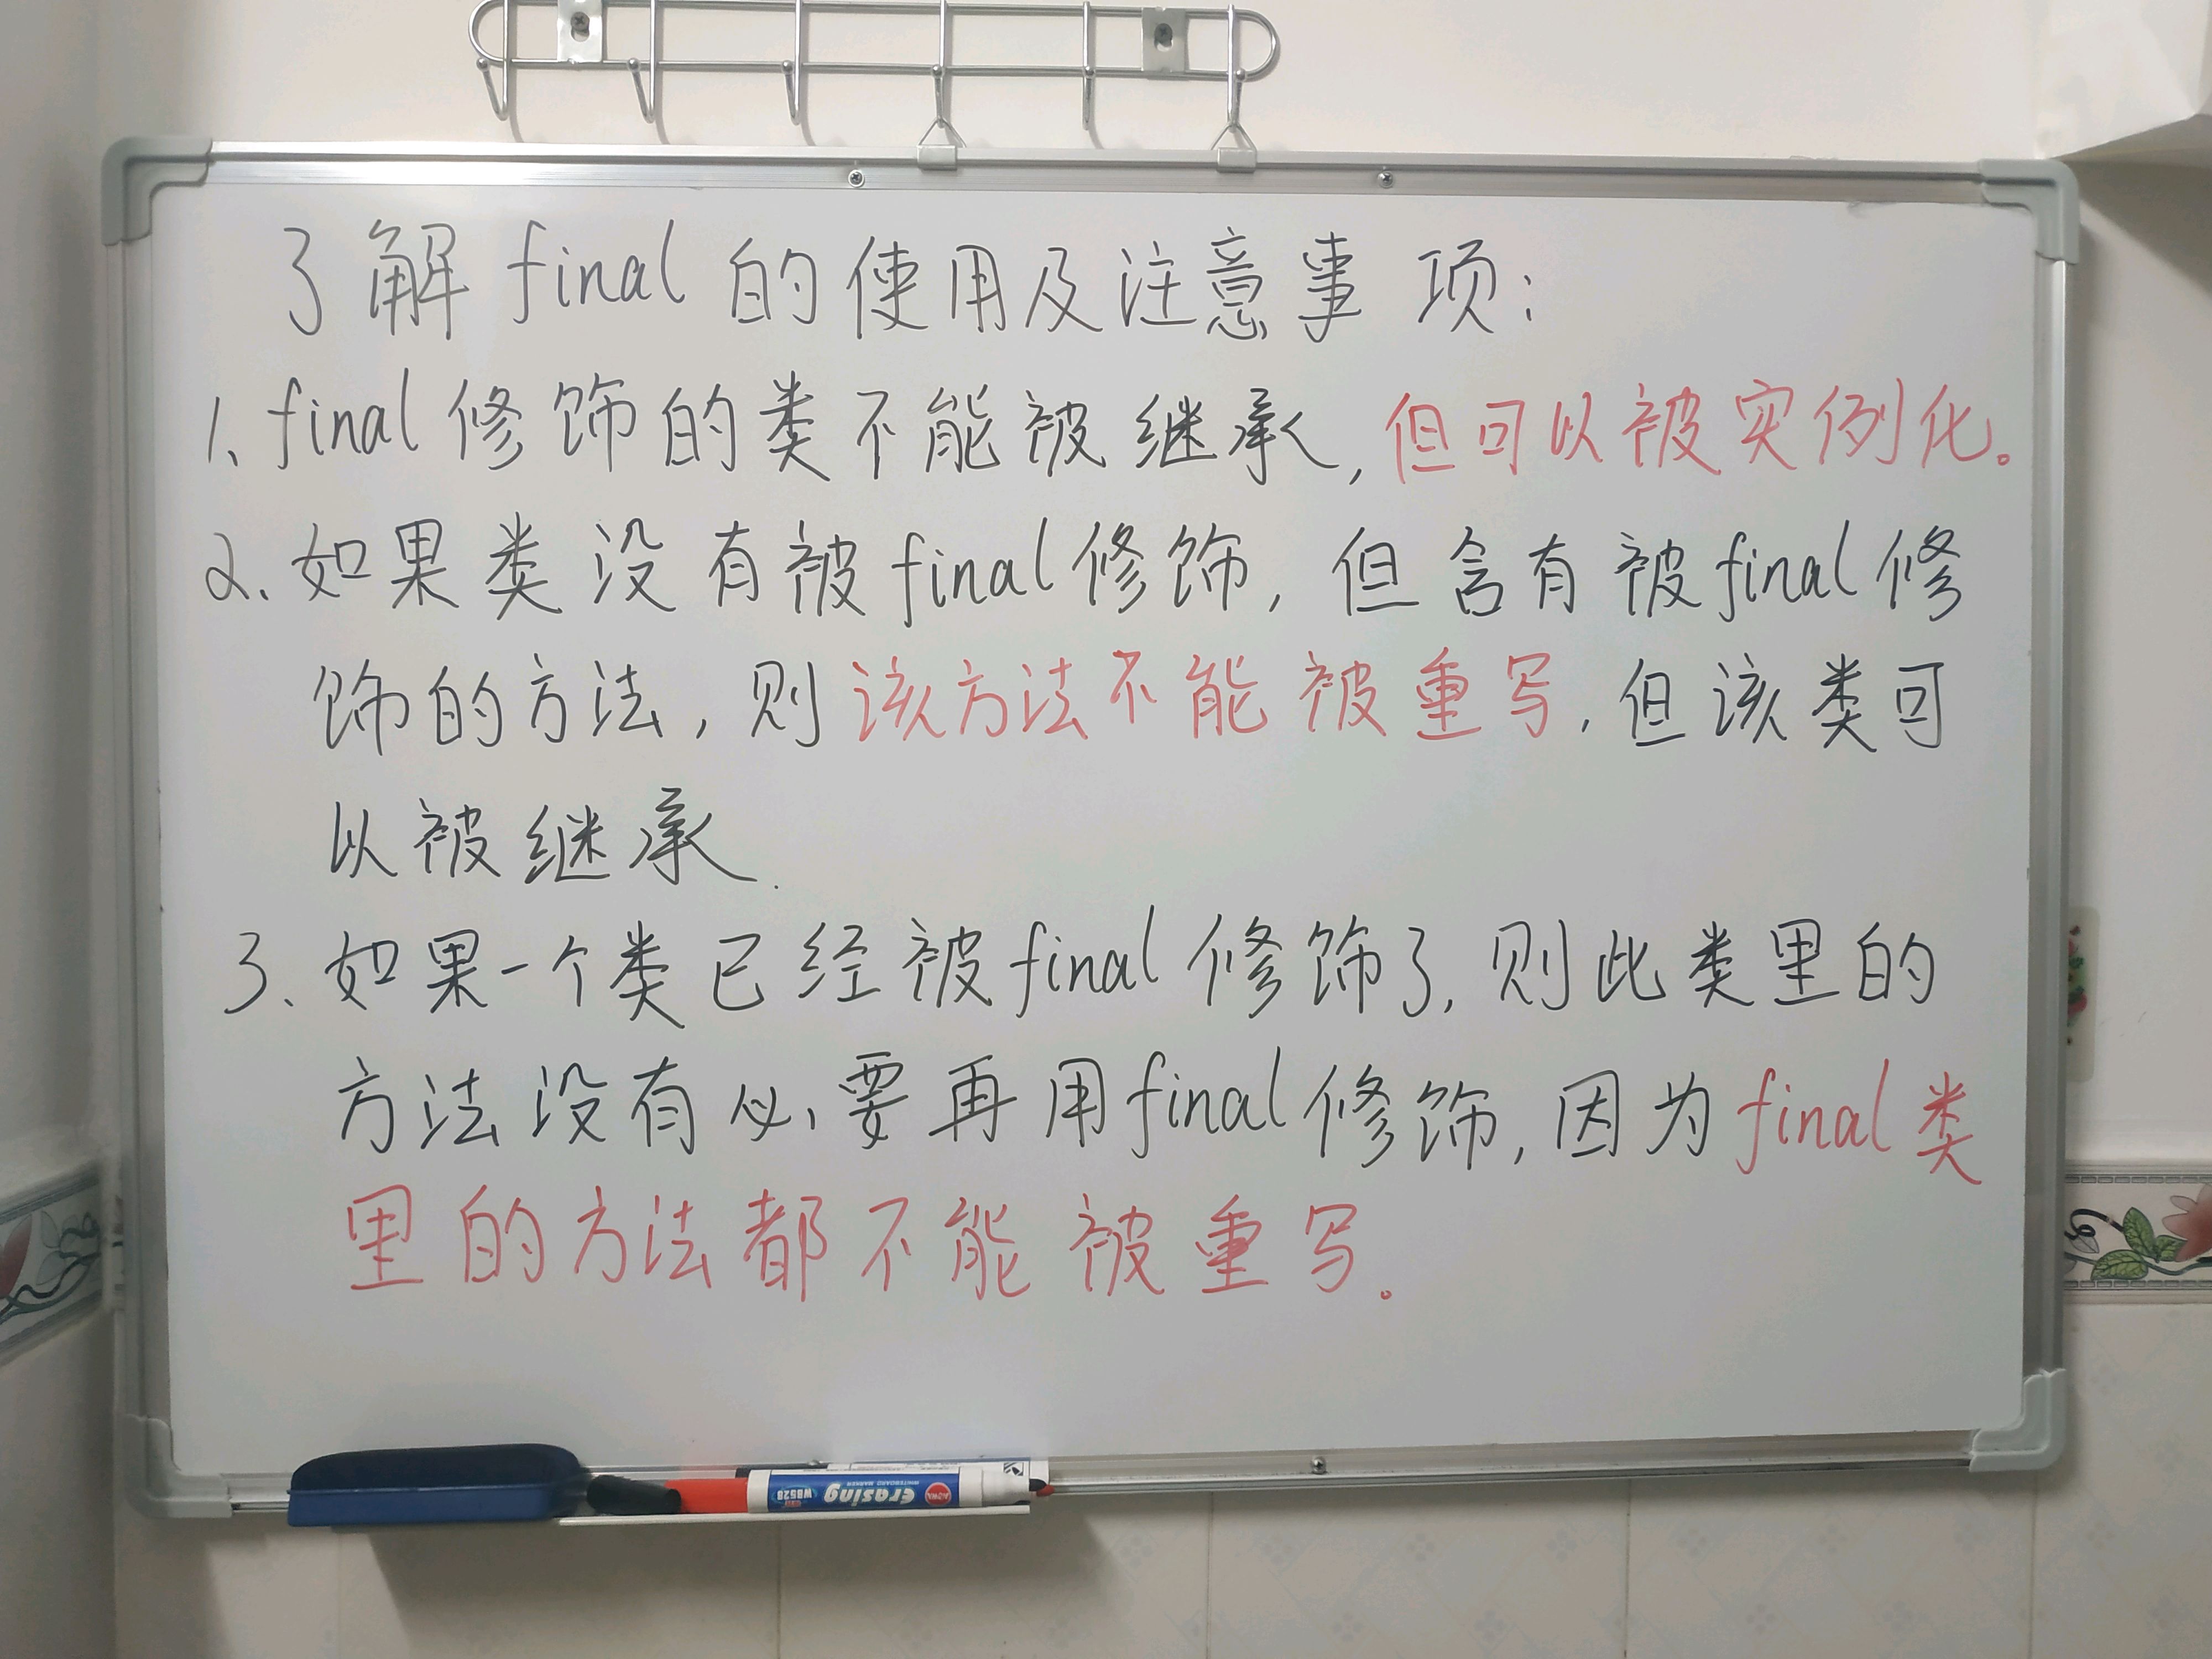 了解final的使用及注意事项:
1、final修饰的类不能被继承,但可以被实例化。
2、如果类没有被final修饰,但含有被final修
饰的方法,则该方法不能被重写,但该类可
以被继承.
3、如果一个类已经被final修饰了,则此类里的
方法没有必要再用final修饰,因为final类
里的方法都不能被重写。
Erasing WB528
WHITEBOARD MARKER